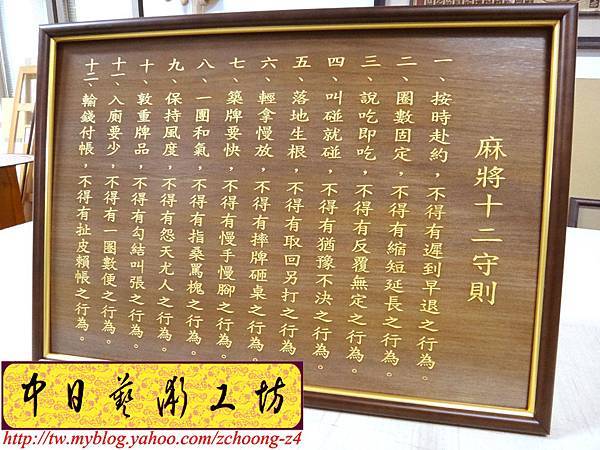 麻將十二守則
一、按時赴約，不得有遲到早退之行為。
二、圈數固定，不得有縮短延長之行為。
三、說吃即吃，不得有反覆無定之行為。
四、叫碰就碰，不得有猶豫不決之行為。
五、落地生根，不得有取回另打之行為。
六、輕拿慢放，不得有摔牌砸桌之行為。
七、築牌要快，不得有慢手慢腳之行為。
八、一團和氣，不得有指桑罵槐之行為。
九、保持風度，不得有怨天尤人之行為。
十、敦重牌品，不得有勾結叫張之行為。
十一、入廁要少，不得有一圈數便之行為。
十二、輸錢付帳，不得有扯皮賴帳之行為。
中日藝術工坊
http://tw.myblog.yahoo.com/zchoong-z4